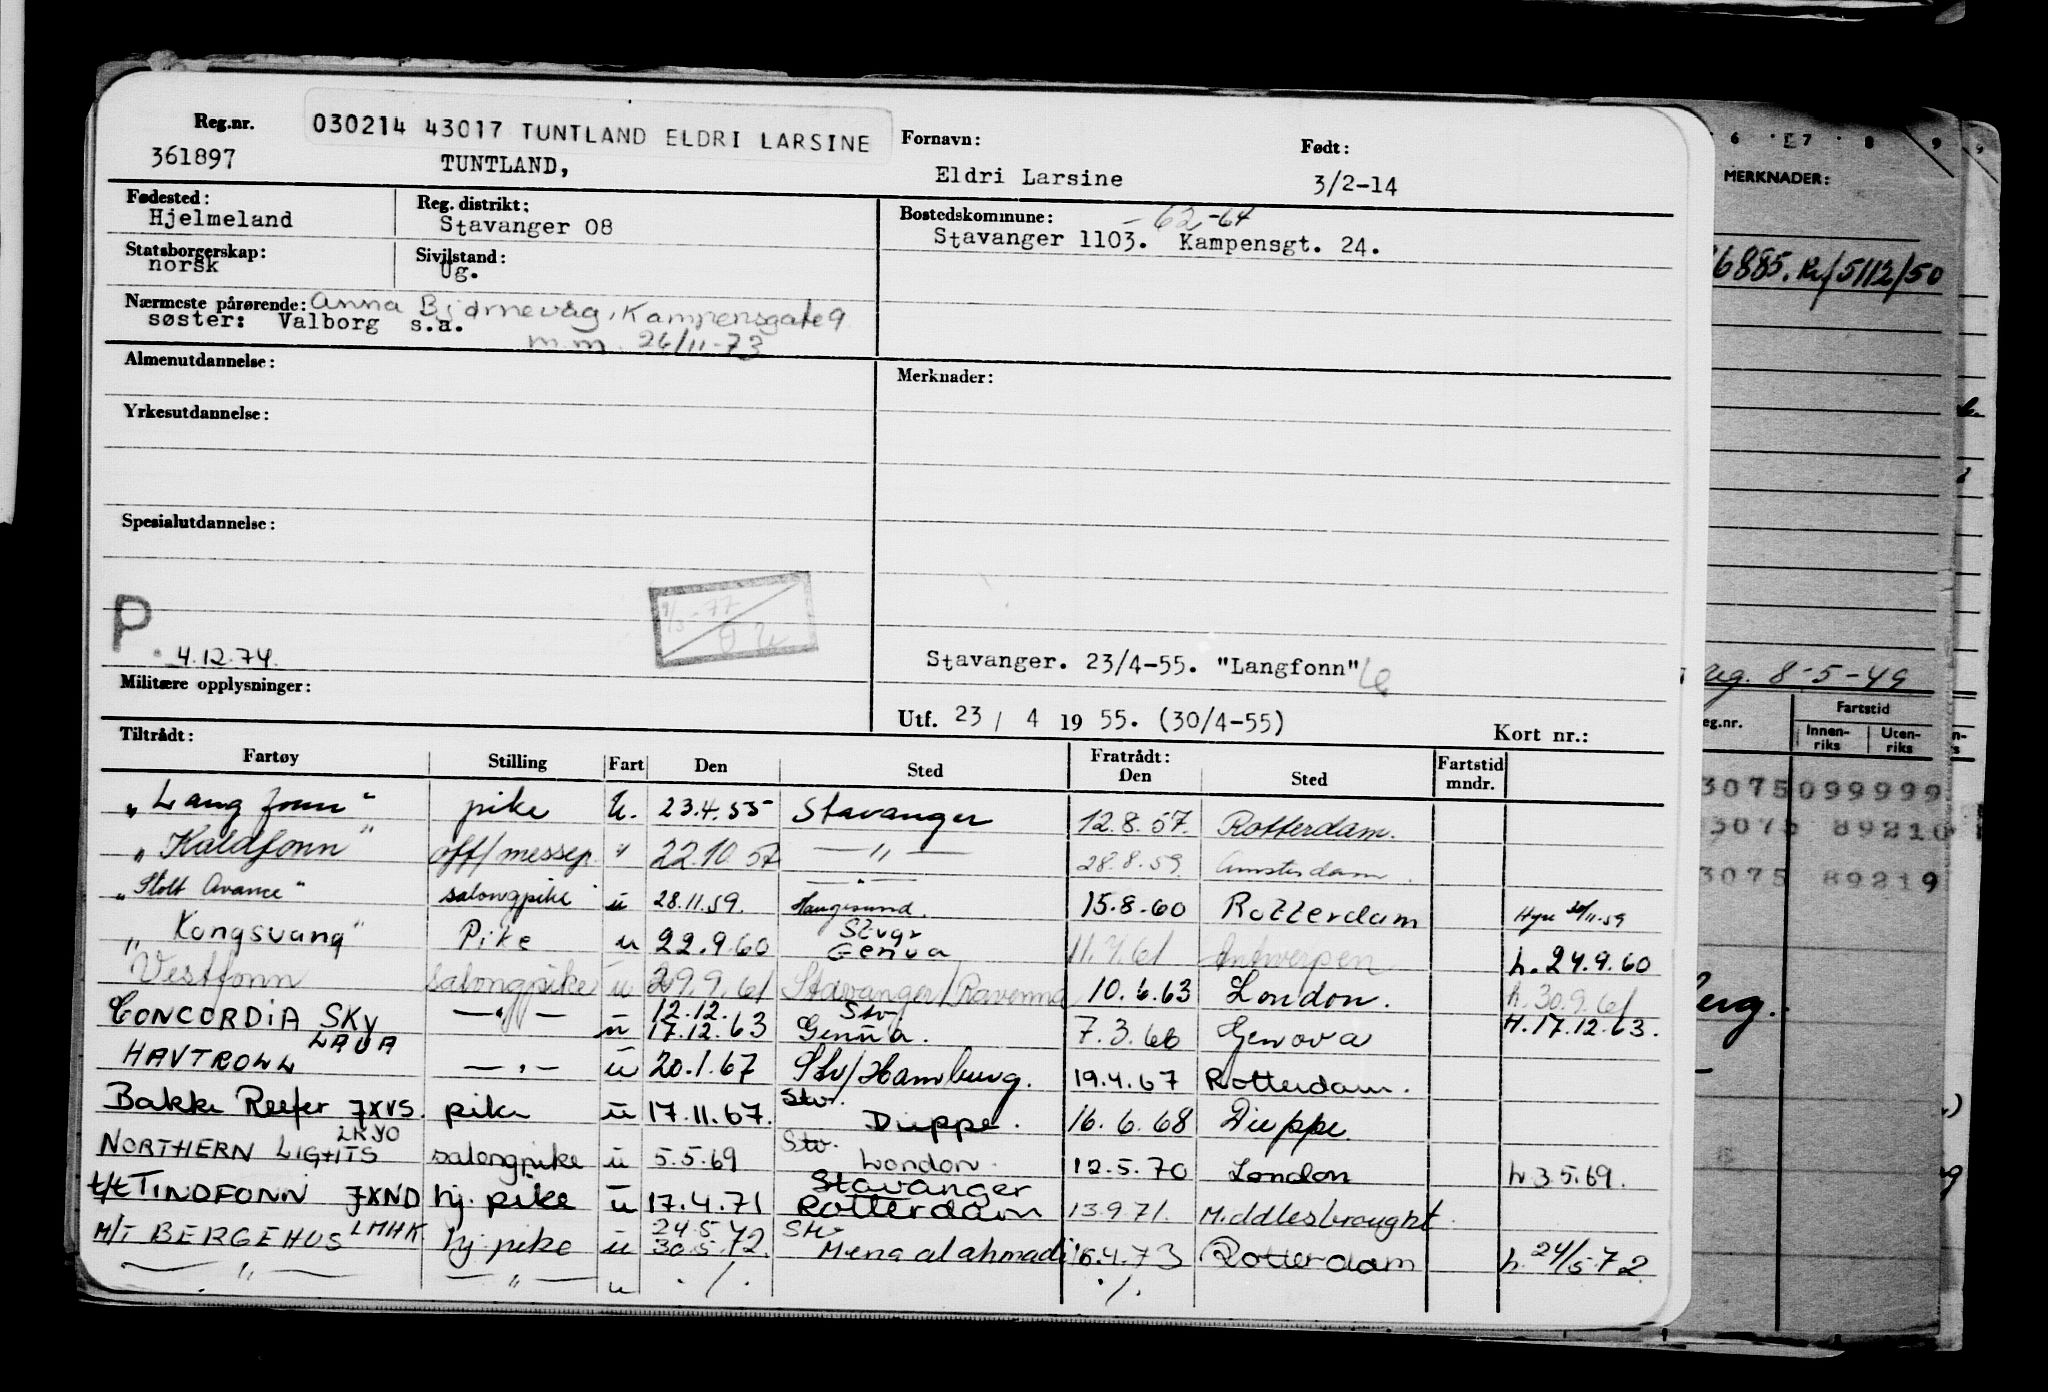 Reg.nr. 030214 43017 TUNTLAND ELDRI LARSINE Fornavn: Født:
361897 TUNTLAND, Eldri Larsine 3/2-14
Fødested: Reg. distrikt: Bostedskommune: - 62-64
Hjelmeland Stavanger 08 Stavanger 1103. Kampensgt. 24.
Statsborgerskap: Sivilstand:
norsk Ug.
Nærmeste pårørende: Anna Bjørnevåg, Kampensgate 9
søster: Valborg s.a.
m.m. 26/11-73
Almenutdannelse: Merknader:
Yrkesutdannelse:
Spesialutdannelse:
P
4.12.74.
Stavanger. 23/4-55. "Langfonn"
Militære opplysninger:
Utf. 23 / 4 19 55. (30/4-55) Kort nr.:
Tiltrådt: Fratrådt:
Fartøy Stilling Fart Den Sted Den Sted Fartstid mndr.
"Langfonn" pike U. 23.4.55 Stavanger 12.8.57. Rotterdam.
"Kaldfonn" off/messep. " 22.10.57 — " — 28.8.59. Amsterdam.
"Stolt Avance" salongpike u 28.11.59. Haugesund. 15.8.60 Rotterdam Hyre 30/11-59
"Kongsvang" Pike u 22.9.60 Stvgr Genua 11.7.61 Antwerpen h. 24.9.60
Vestfonn salongpike u 29.9.61 Stavanger/Ravenna 10.6.63 London. h. 30.9.61
CONCORDIA SKY — " — u 12.12. 17.12.63 Stv Genua. 7.3.66 Genova H. 17.12.63.
HAVTROLL LAUA — " — u 20.1.67 Stv/Hamburg. 19.4.67 Rotterdam.
Bakke Reefer JXVS. pike u 17.11.67. Stv. Dieppe. 16.6.68 Dieppe.
NORTHERN LIGHTS LKYO salongpike u 5.5.69 Stv. London. 12.5.70 London h 3.5.69.
t/t TINDFONN JXND hj. pike u 17.4.71 Stavanger Rotterdam 13.9.71. Middlesbrought
M/T BERGEHUS LMHK hj. pike u 24.5 30.5.72. Stv Mena al ahmadi 16.4.73 Rotterdam h. 24/5-72
— " — — " — u ./. ./.
6 7 8 9
MERKNADER:
6885. 5/12/50
8-5-49
eg.nr. Fartstid
Innen-riks Uten-riks
3075 099999
3075 89210
3075 89219